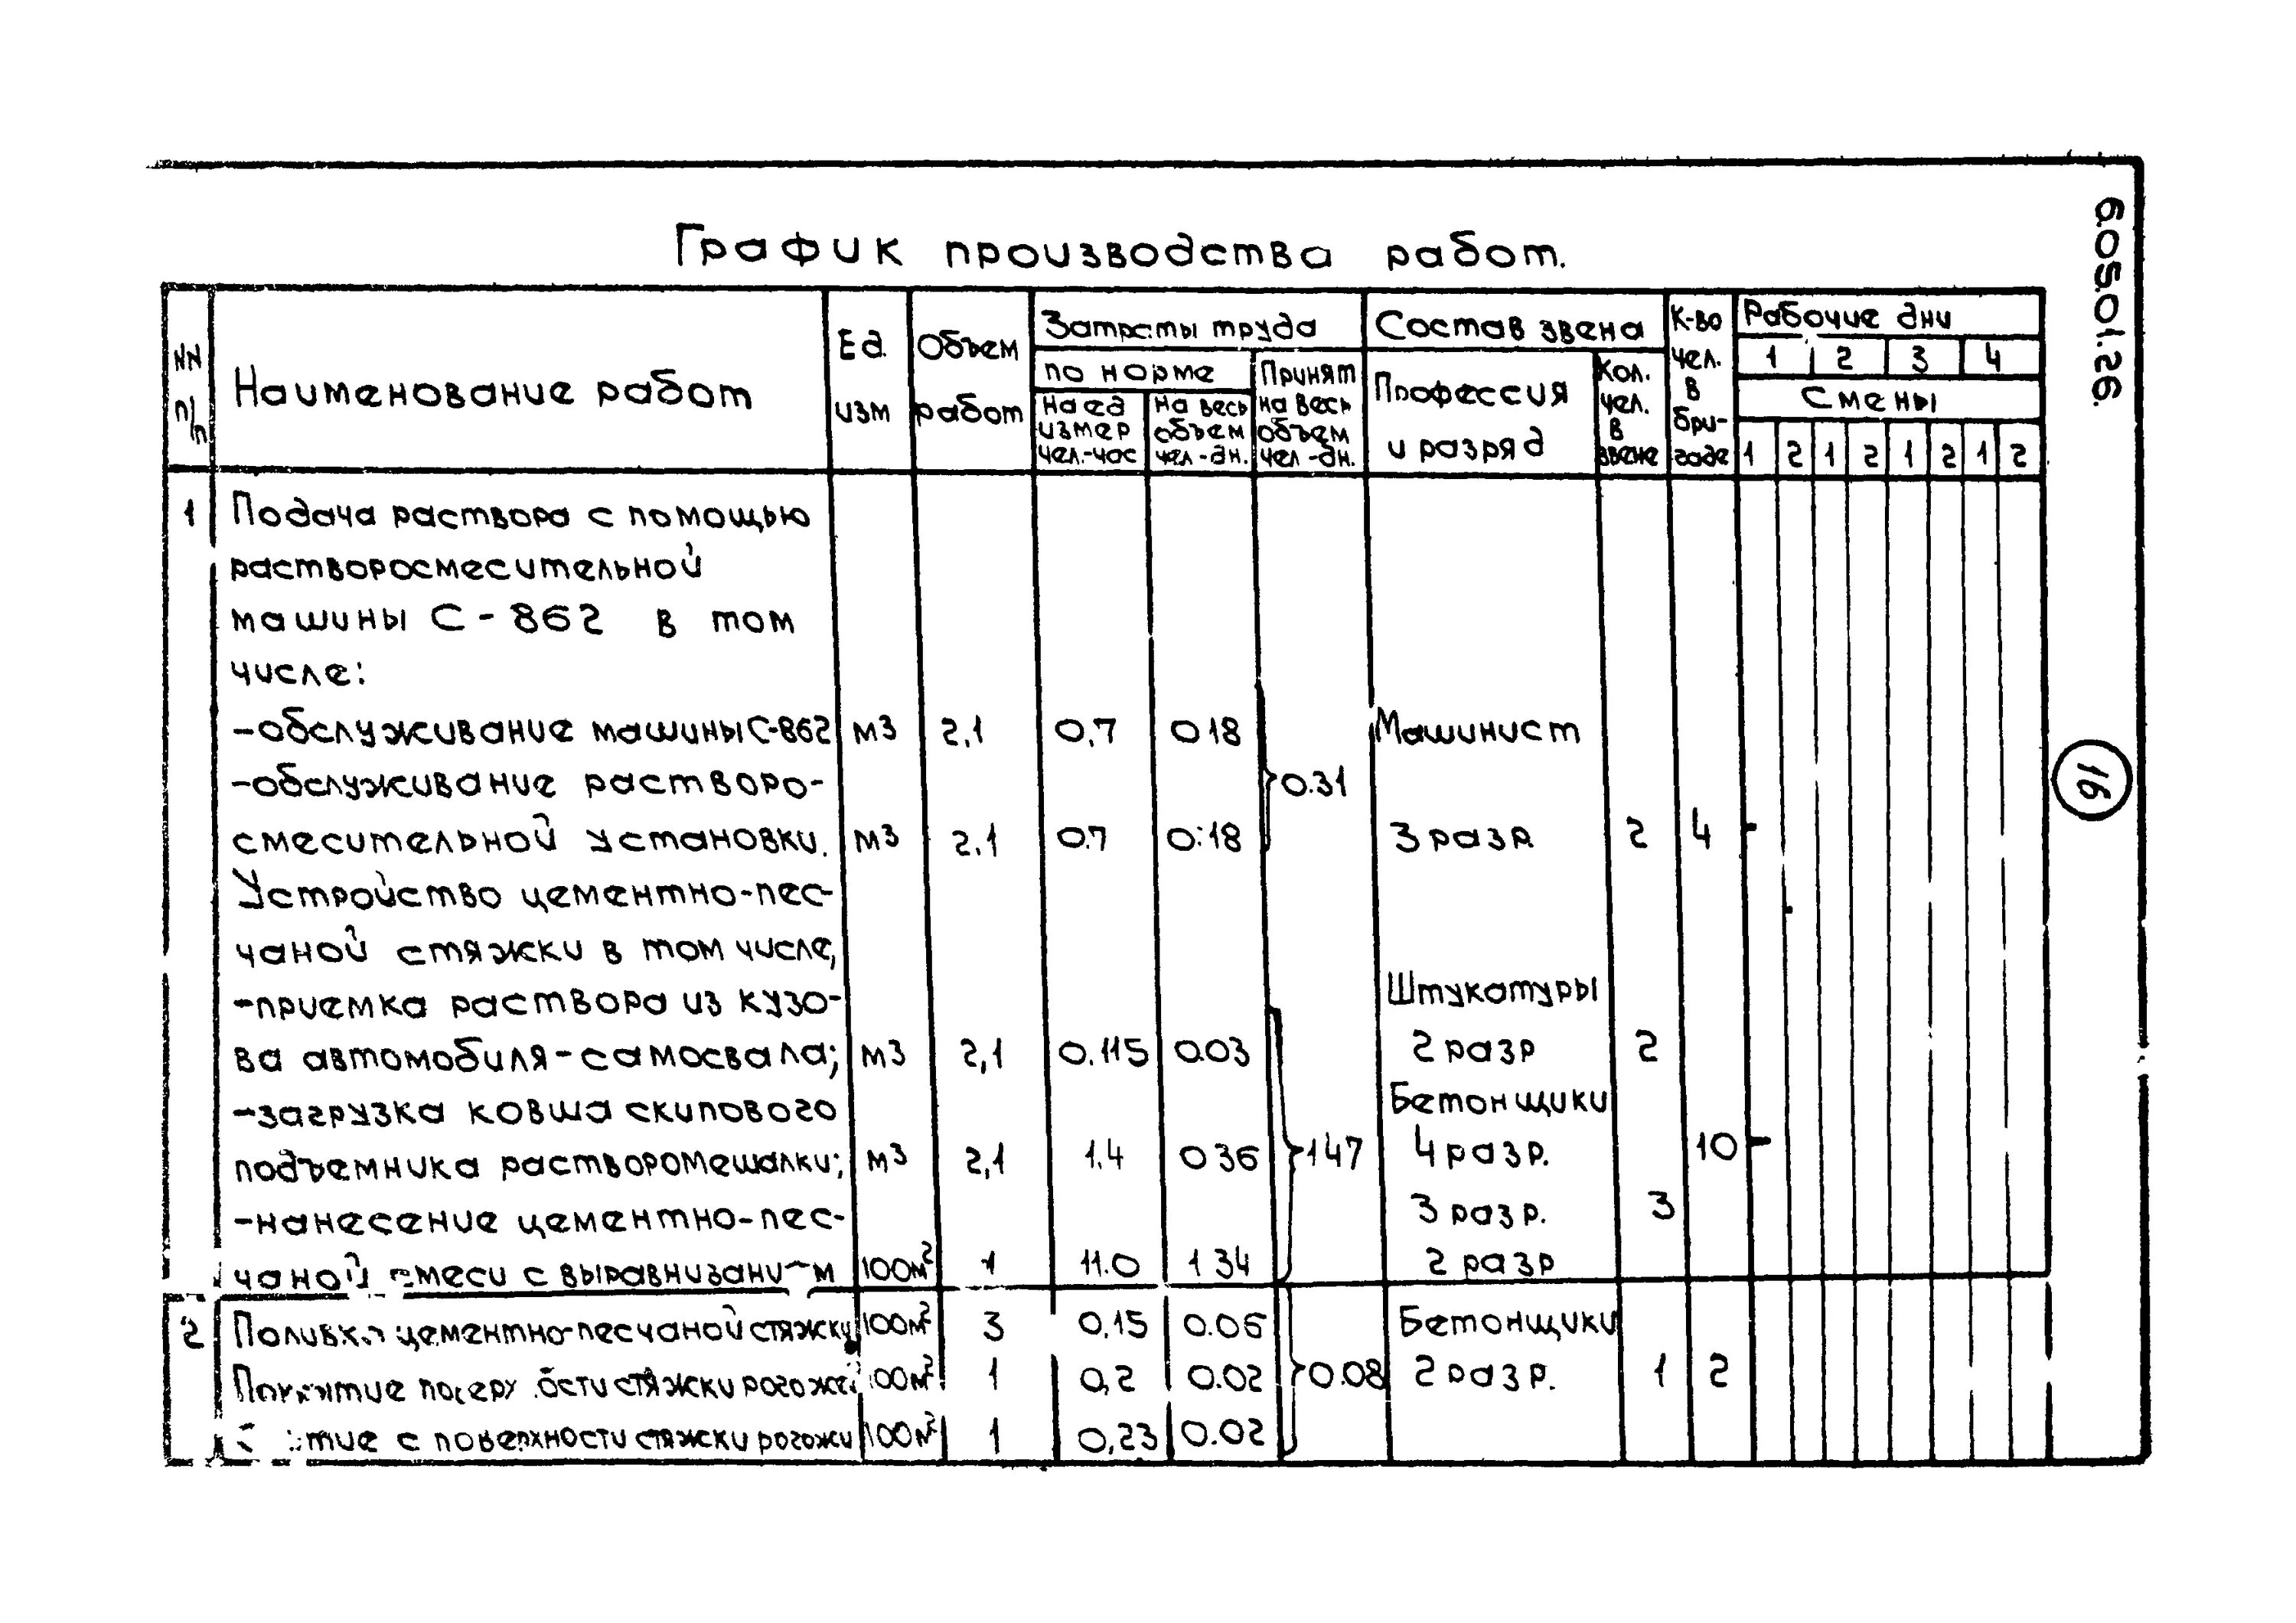 График производства работ.
6.05.01.26.
16
NN п/п
Наименование работ
Ед. изм
Объем работ
Затраты труда
по норме
на ед измер чел.-час
на весь объем чел-дн.
Принят на весь объем чел-дн.
Состав звена
Профессия и разряд
Кол. чел. в звене
К-во чел. в бригаде
Рабочие дни
1 2 3 4
Смены
1 2 1 2 1 2 1 2
1 Подача раствора с помощью
растворосмесительной
машины С-862 в том
числе:
-обслуживание машины С-862 м3 2,1 0,7 0 18 Машинист
-обслуживание растворо- 0.31
смесительной установки. м3 2.1 0.7 0:18 3 разр. 2 4
Устройство цементно-пес-
чаной стяжки в том числе,
-приемка раствора из кузо- Штукатуры
ва автомобиля-самосвала; м3 2,1 0.115 0.03 2 разр 2
-загрузка ковша скипового Бетонщики
подъемника растворомешалки; м3 2,1 1.4 0 36 147 4 разр. 10
-нанесение цементно-пес- 3 разр. 3
чаной смеси с 100м2 1 11.0 1 34 2 разр
2 цементно-песчаной стяжки 100м2 3 0,15 0.06 Бетонщики
стяжки 100м2 1 0,2 0.02 0.08 2 разр. 1 2
с поверхности стяжки рогожи 100м2 1 0,23 0.02